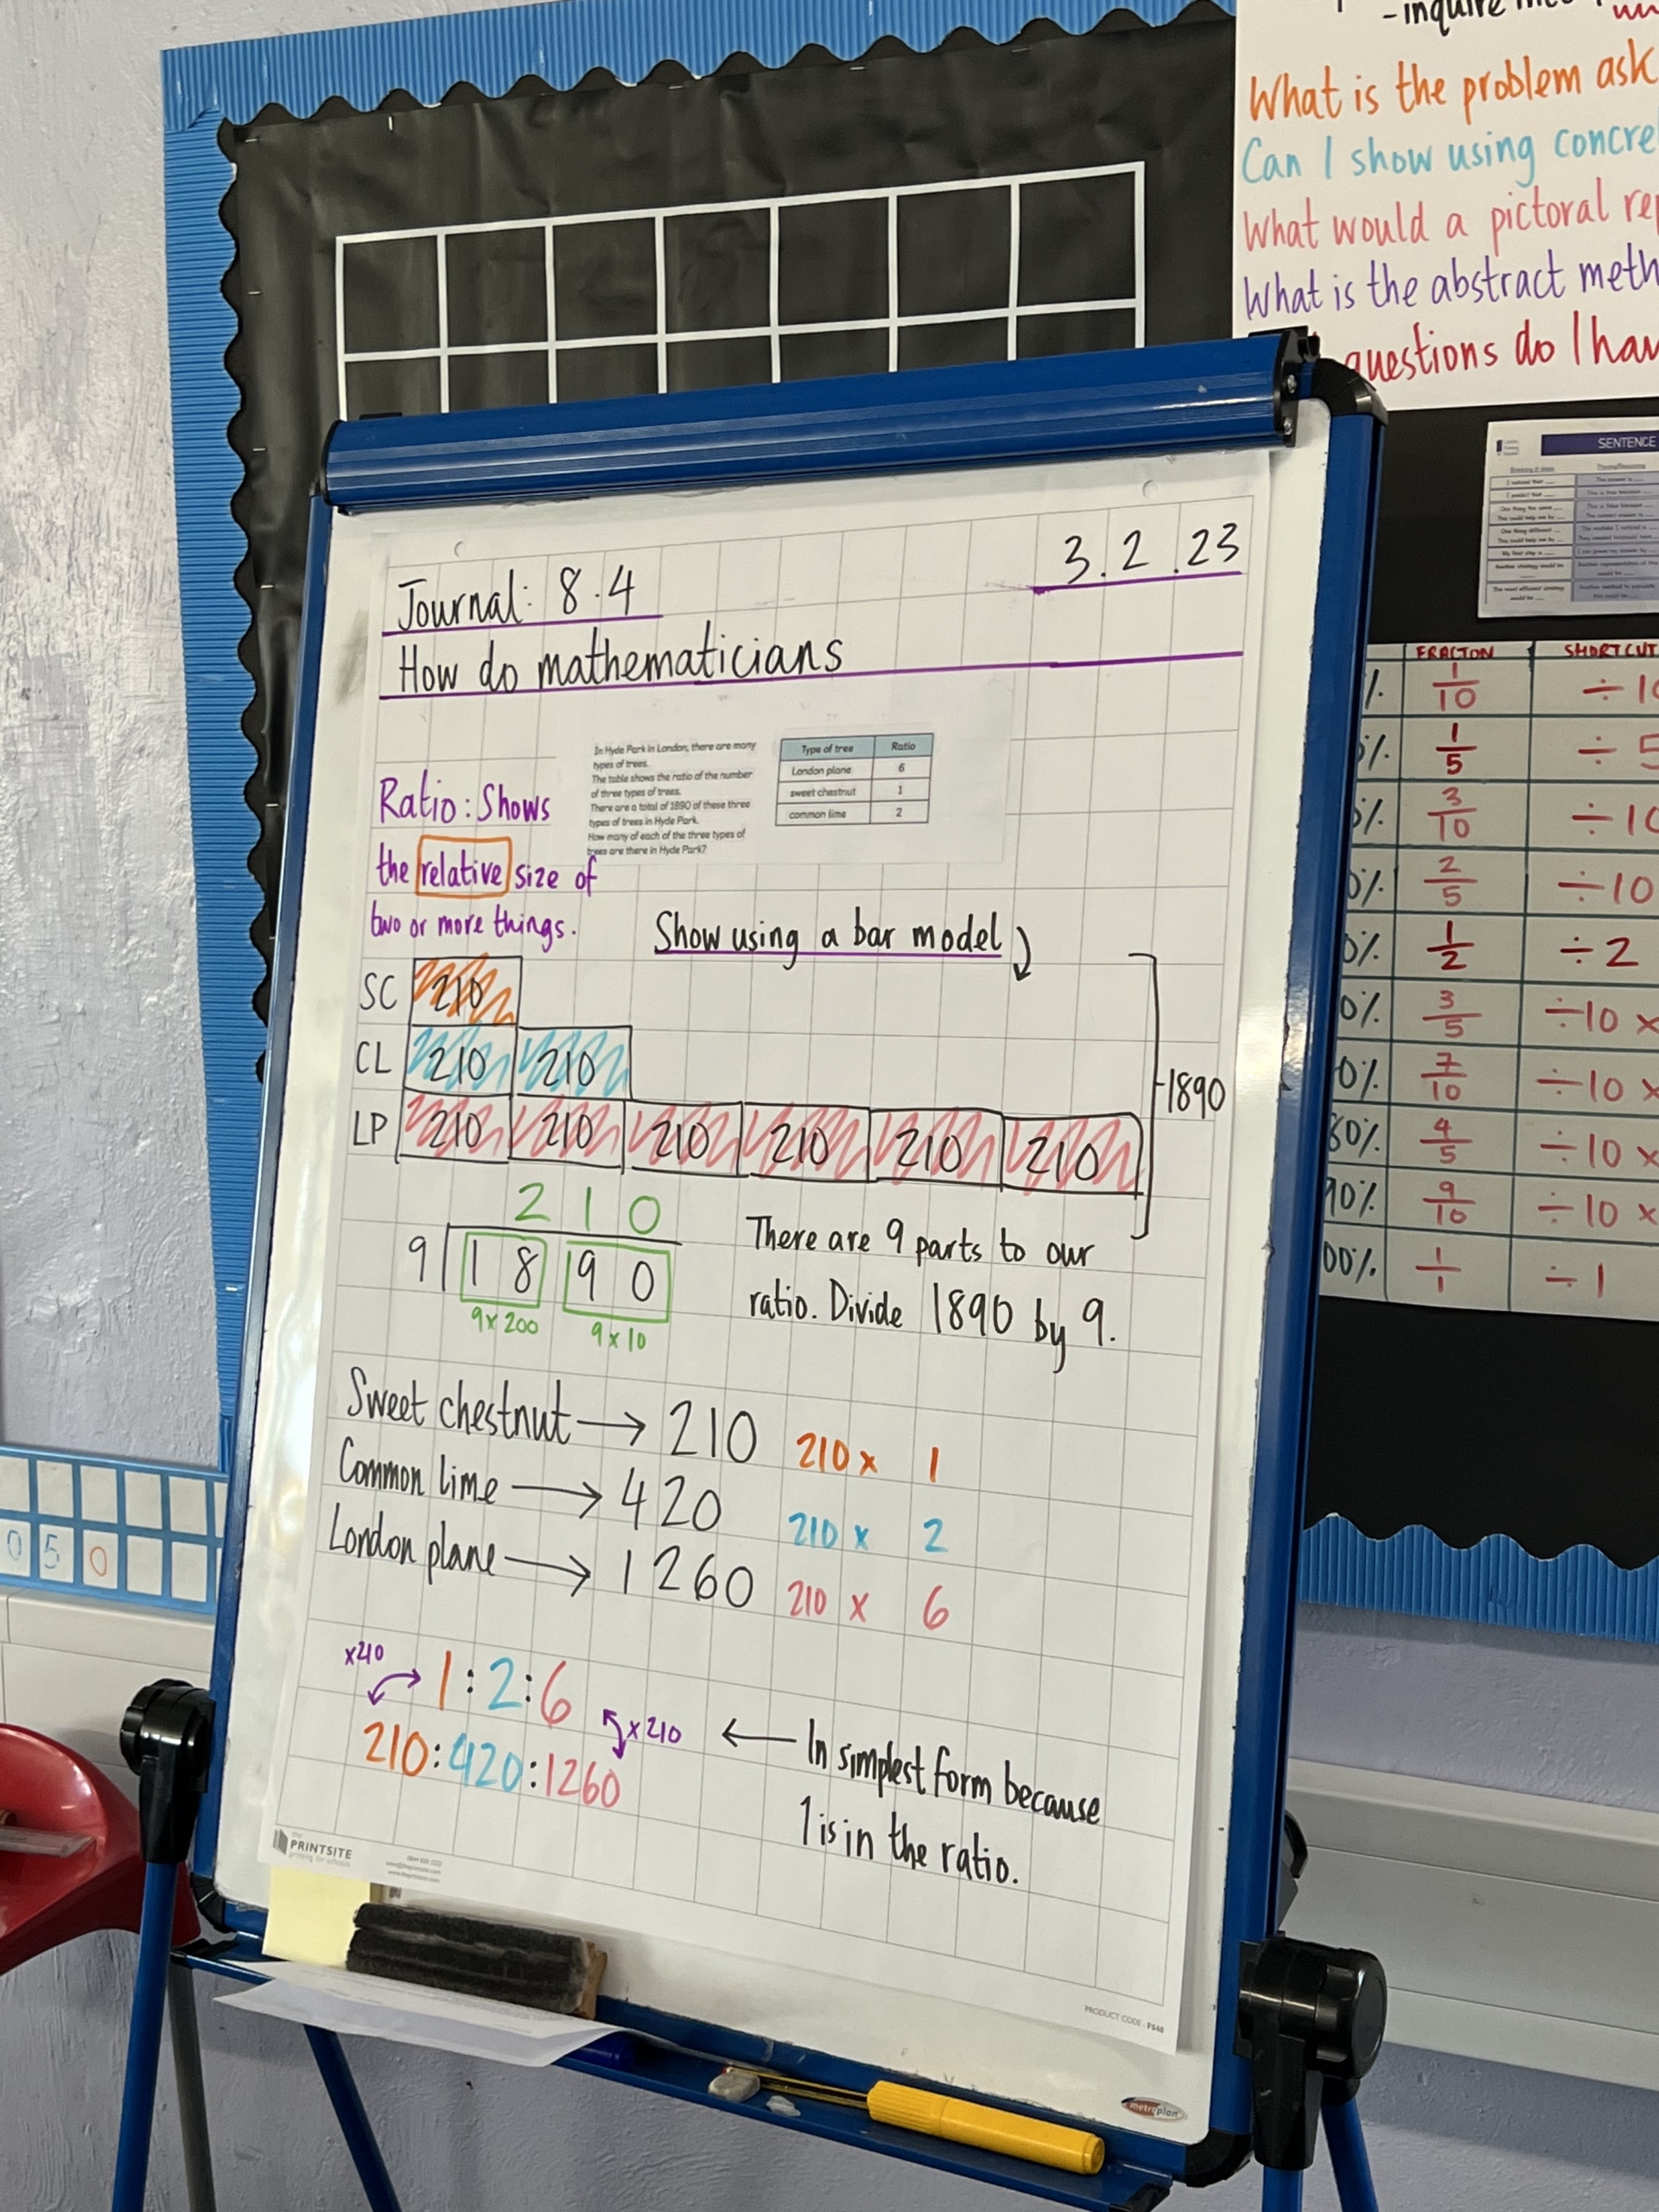 - inquire
What is the problem ask
Can I show using concre
What would a pictoral rep
What is the abstract meth
questions do I hav
SENTENCE
Journal: 8.4
3.2.23
How do mathematicians
In Hyde Park in London, there are many
types of trees.
The table shows the ratio of the number
of three types of trees.
There are a total of 1890 of these three
types of trees in Hyde Park.
How many of each of the three types of
trees are there in Hyde Park?
Type of tree Ratio
London plane 6
sweet chestnut 1
common lime 2
Ratio: Shows
the relative size of
two or more things.
Show using a bar model
SC 210
CL 210 210
LP 210 210 210 210 210 210
1890
210
9 1890
9x200 9x10
There are 9 parts to our
ratio. Divide 1890 by 9.
Sweet chestnut → 210 210 x 1
Common lime → 420 210 x 2
London plane → 1260 210 x 6
x210 1:2:6
210:420:1260 x210
← In simplest form because
1 is in the ratio.
PRINTSITE
printing for schools
PRODUCT CODE - FS40
metroplan
FRACTON SHORTCUT
%. 1/10 ÷10
%. 1/5 ÷5
%. 3/10 ÷10
0%. 2/5 ÷10
0%. 1/2 ÷2
0%. 3/5 ÷10 x
0%. 7/10 ÷10 x
80%. 4/5 ÷10 x
90%. 9/10 ÷10 x
00%. 1/1 ÷1
0 5 0